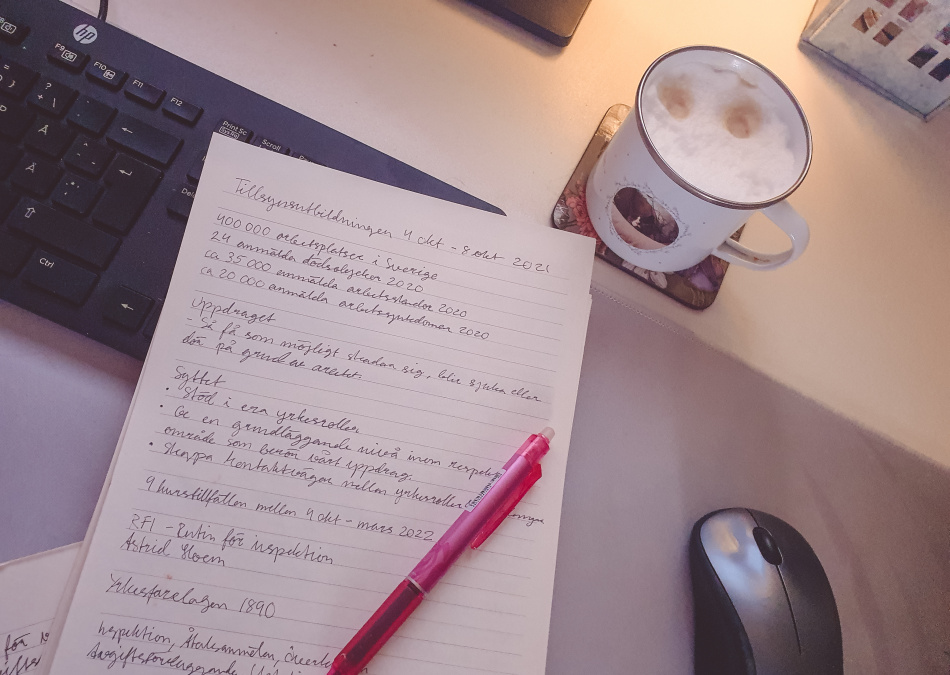 hp
F9
F10
F11
F12
Print Sc
SysRq
Scroll
Ctrl
Å
Ä
Tillsynsutbildningen 4 okt - 8 okt 2021
400 000 arbetsplatser i Sverige
24 anmälda dödsolyckor 2020
ca 35 000 anmälda arbetsskador 2020
ca 20 000 anmälda arbetssjukdomar 2020
Uppdraget
- Så få som möjligt skadar sig, blir sjuka eller
dör på grund av arbetet.
Syftet
• Stöd i era yrkesroller
• Ge en grundläggande nivå inom
område som berör vårt uppdrag.
• Skapa kontaktvägar mellan yrkesroller
9 kurstillfällen mellan 4 okt - mars 2022
RF1 - Rutin för inspektion
Astrid
Yrkesfarelagen 1890
Inspektion, Åtalsanmälan,
Avgiftsföreläggande
för